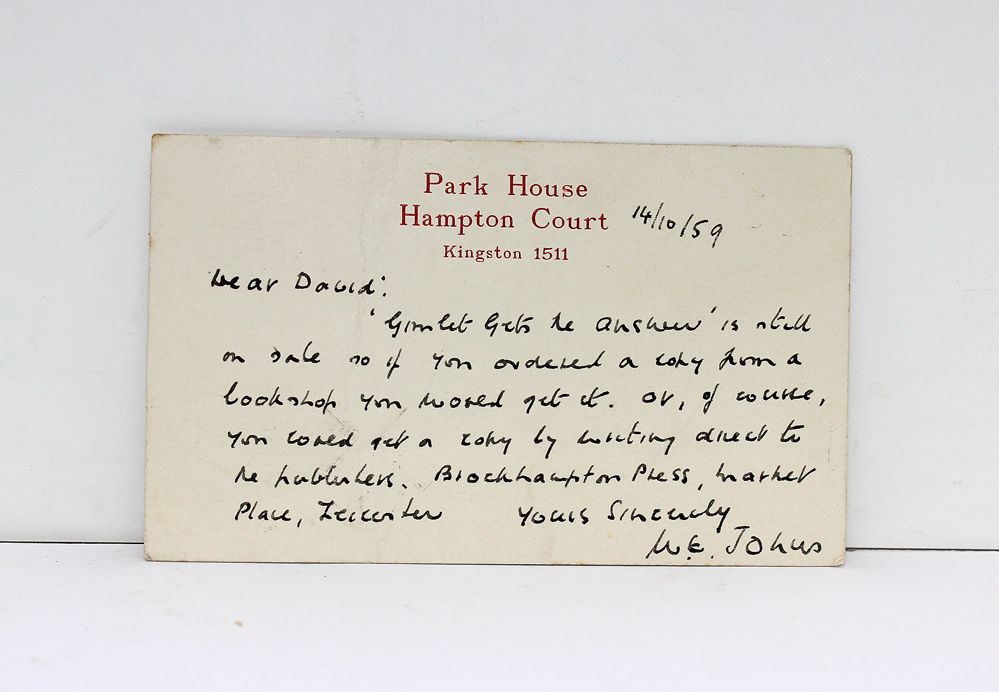 Park House
Hampton Court
14/10/59
Kingston 1511
Dear David:
'Gimlet Gets the Answer' is still
on sale so if you ordered a copy from a
bookshop you would get it. Or, of course,
you could get a copy by writing direct to
the publishers. Brockhampton Press, Market
Place, Leicester Yours Sincerely
W.E. Johns